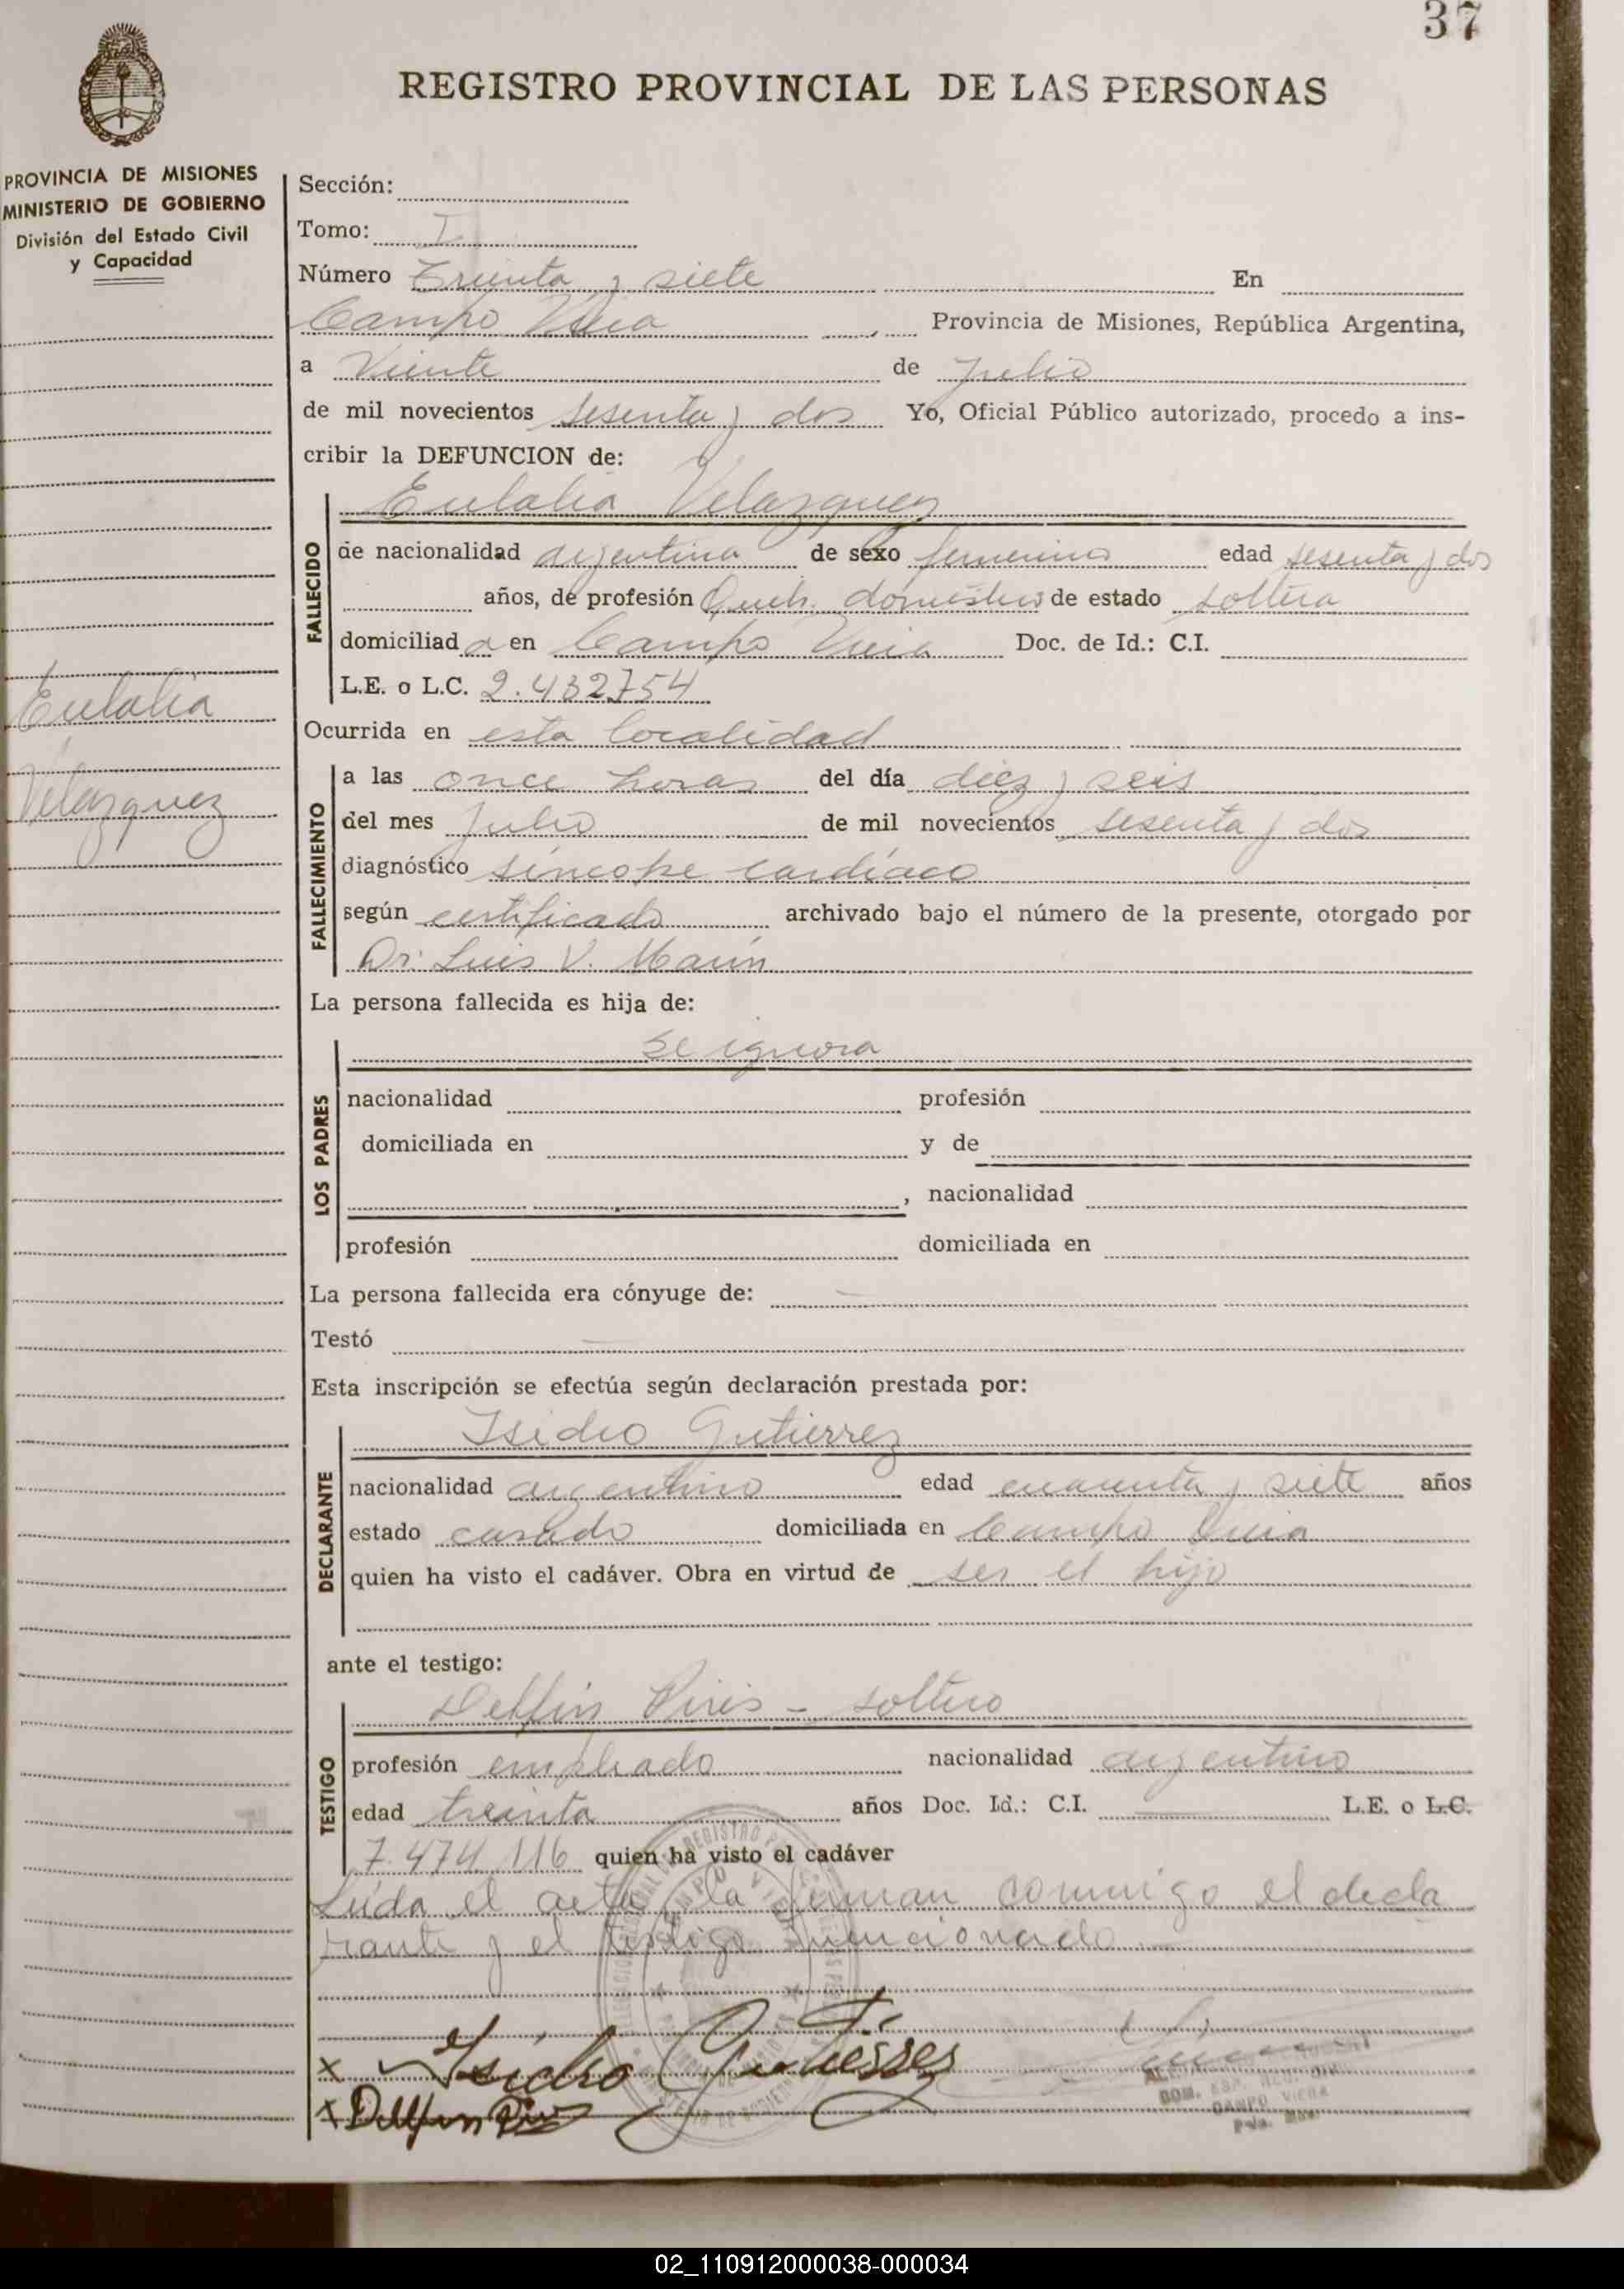 37
REGISTRO PROVINCIAL DE LAS PERSONAS
PROVINCIA DE MISIONES
MINISTERIO DE GOBIERNO
División del Estado Civil
y Capacidad
Sección:
Tomo: I
Número Treinta y siete En
Campo Viera Provincia de Misiones, República Argentina,
a Veinte de Julio
de mil novecientos sesenta y dos Yo, Oficial Público autorizado, procedo a ins-
cribir la DEFUNCION de:
Eulalia Velazquez
FALLECIDO
de nacionalidad argentina de sexo femenino edad sesenta y dos
años, de profesión Queh. domésticos de estado soltera
domiciliada en Campo Viera Doc. de Id.: C.I.
L.E. o L.C. 2.432754
Eulalia
Velazquez
Ocurrida en esta localidad
FALLECIMIENTO
a las once horas del día diez y seis
del mes Julio de mil novecientos sesenta y dos
diagnóstico síncope cardíaco
según certificado archivado bajo el número de la presente, otorgado por
Dr. Luis V. Marín
La persona fallecida es hija de:
LOS PADRES
se ignora
nacionalidad profesión
domiciliada en y de
, nacionalidad
profesión domiciliada en
La persona fallecida era cónyuge de: —
Testó —
Esta inscripción se efectúa según declaración prestada por:
DECLARANTE
Isidro Gutierrez
nacionalidad argentino edad cuarenta y siete años
estado casado domiciliada en Campo Viera
quien ha visto el cadáver. Obra en virtud de ser el hijo
ante el testigo:
TESTIGO
Delfin Piris - soltero
profesión empleado nacionalidad argentino
edad treinta años Doc. Id.: C.I. — L.E. o L.C.
7.474.116 quien ha visto el cadáver
Leída el acta, la firman conmigo el decla
rante y el testigo mencionado —
x Isidro Gutierrez
x Delfin Piris
CAMPO VIERA
02_110912000038-000034